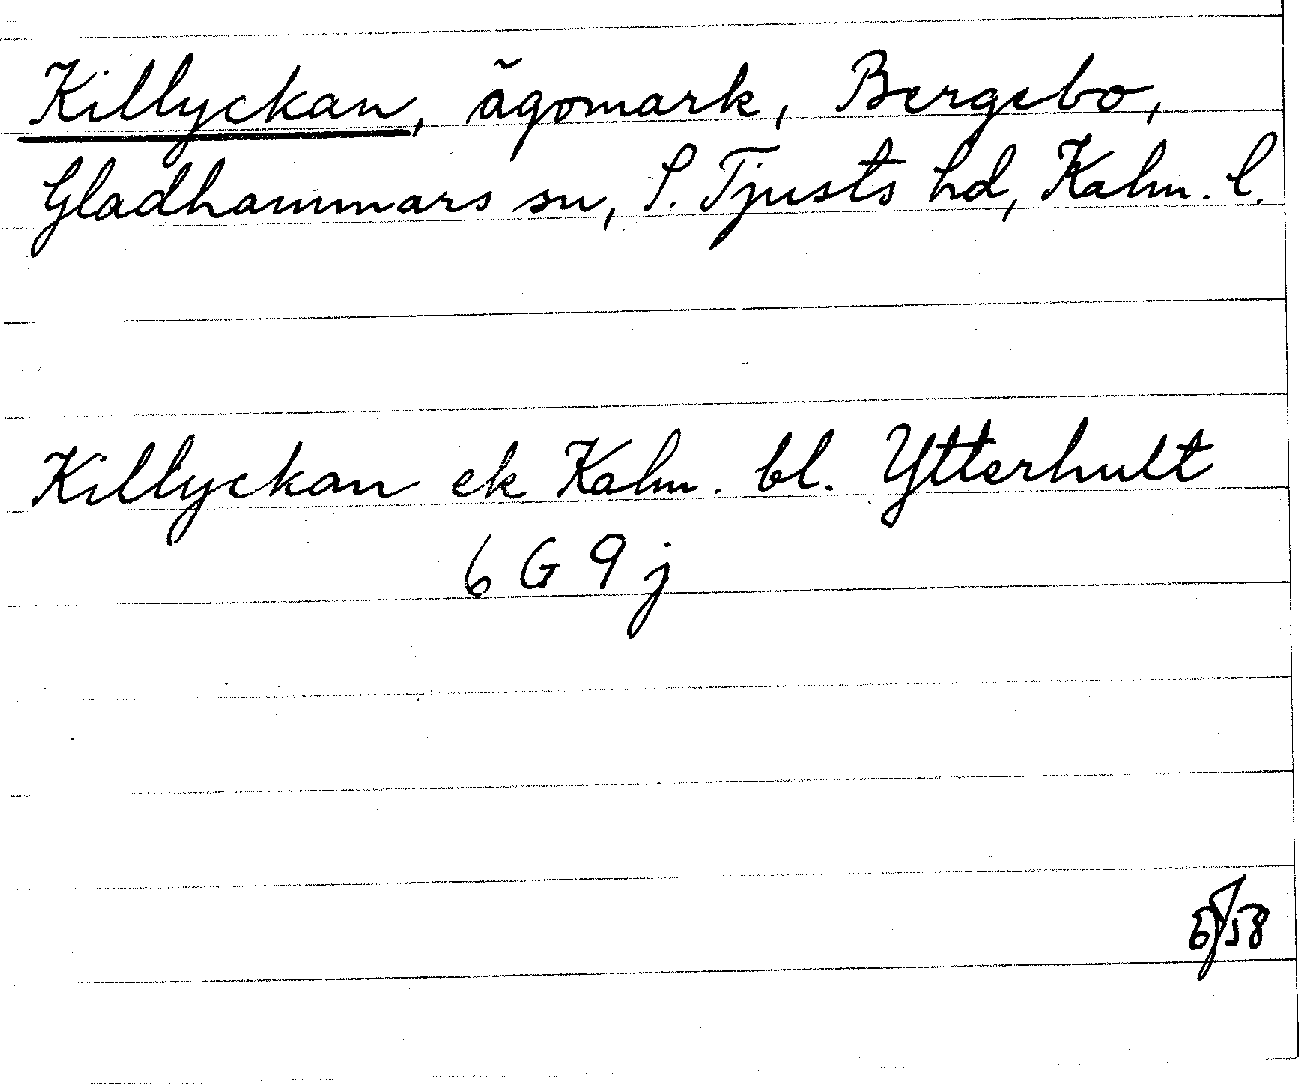 Killyckan, ägomark, Bergebo,
Gladhammars sn, S. Tjusts hd, Kalm. l.
Killyckan ek Kalm. bl. Ytterhult
6 G 9 j